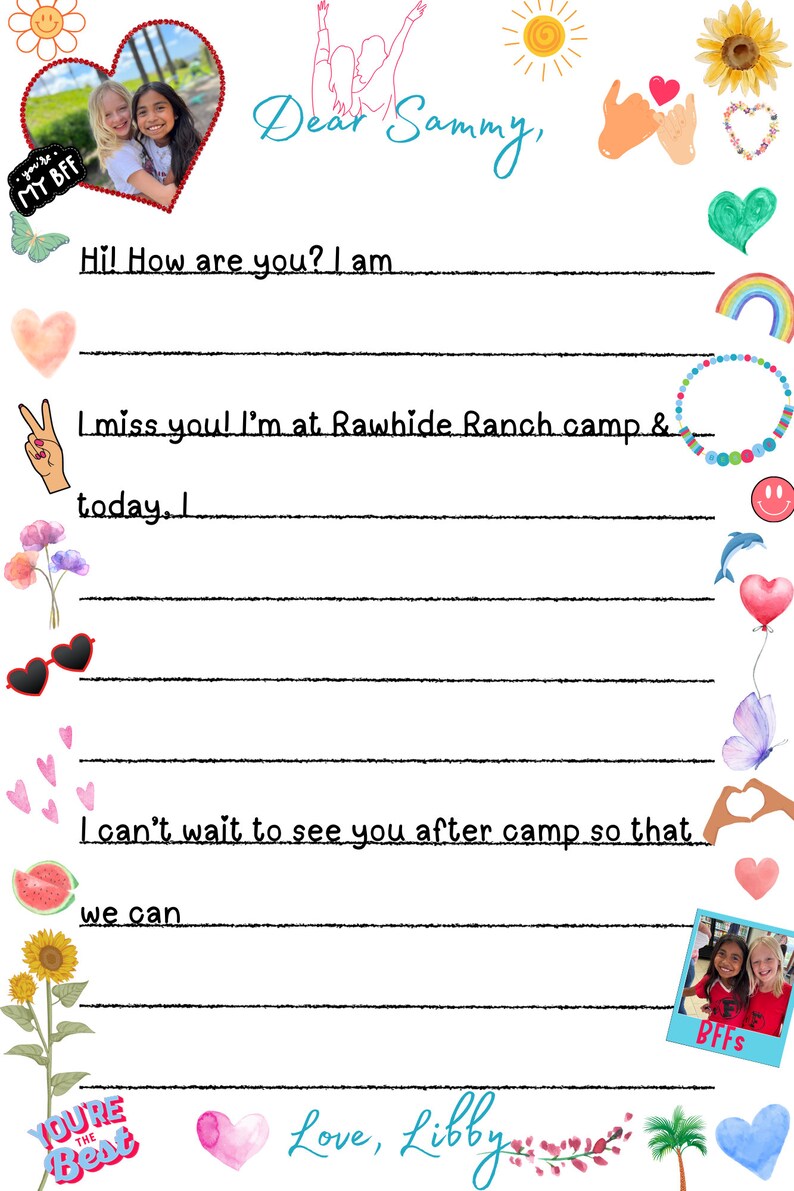 Dear Sammy,
you're
MY BFF
Hi! How are you? I am
I miss you! I'm at Rawhide Ranch camp &
today, I
I can't wait to see you after camp so that
we can
BFFs
YOU'RE
THE
Best
Love, Libby